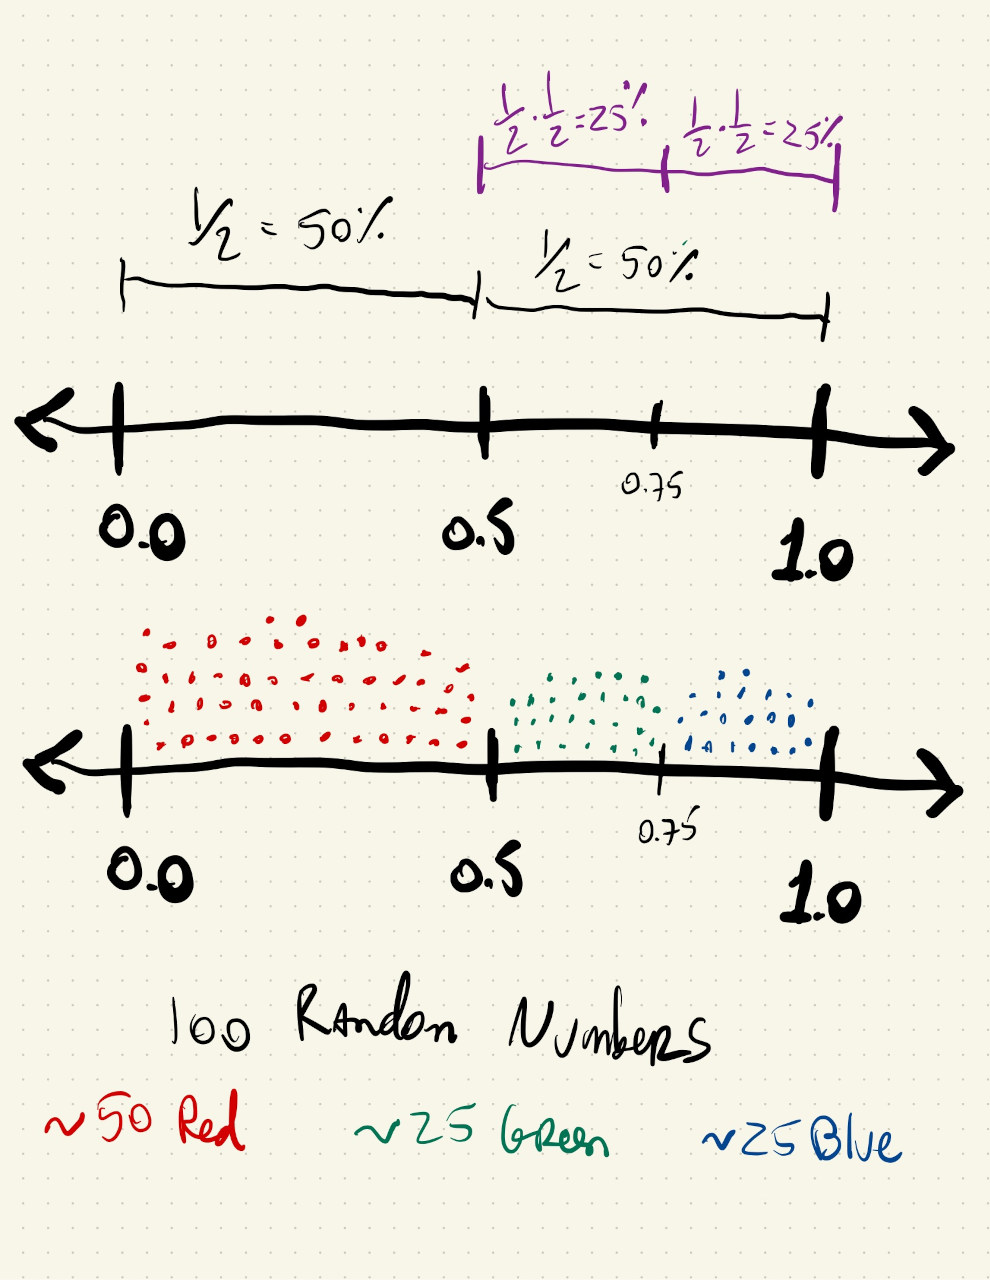 1/2 · 1/2 = 25% 1/2 · 1/2 = 25%
1/2 = 50% 1/2 = 50%
0.0 0.5 0.75 1.0
0.0 0.5 0.75 1.0
100 Random Numbers
~50 Red ~25 Green ~25 Blue